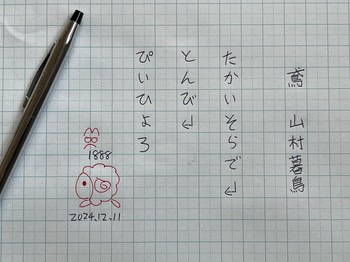 鳶 山村暮鳥
たかいそらで↲
とんび↲
ぴいひよろ
1888
2024.12.11